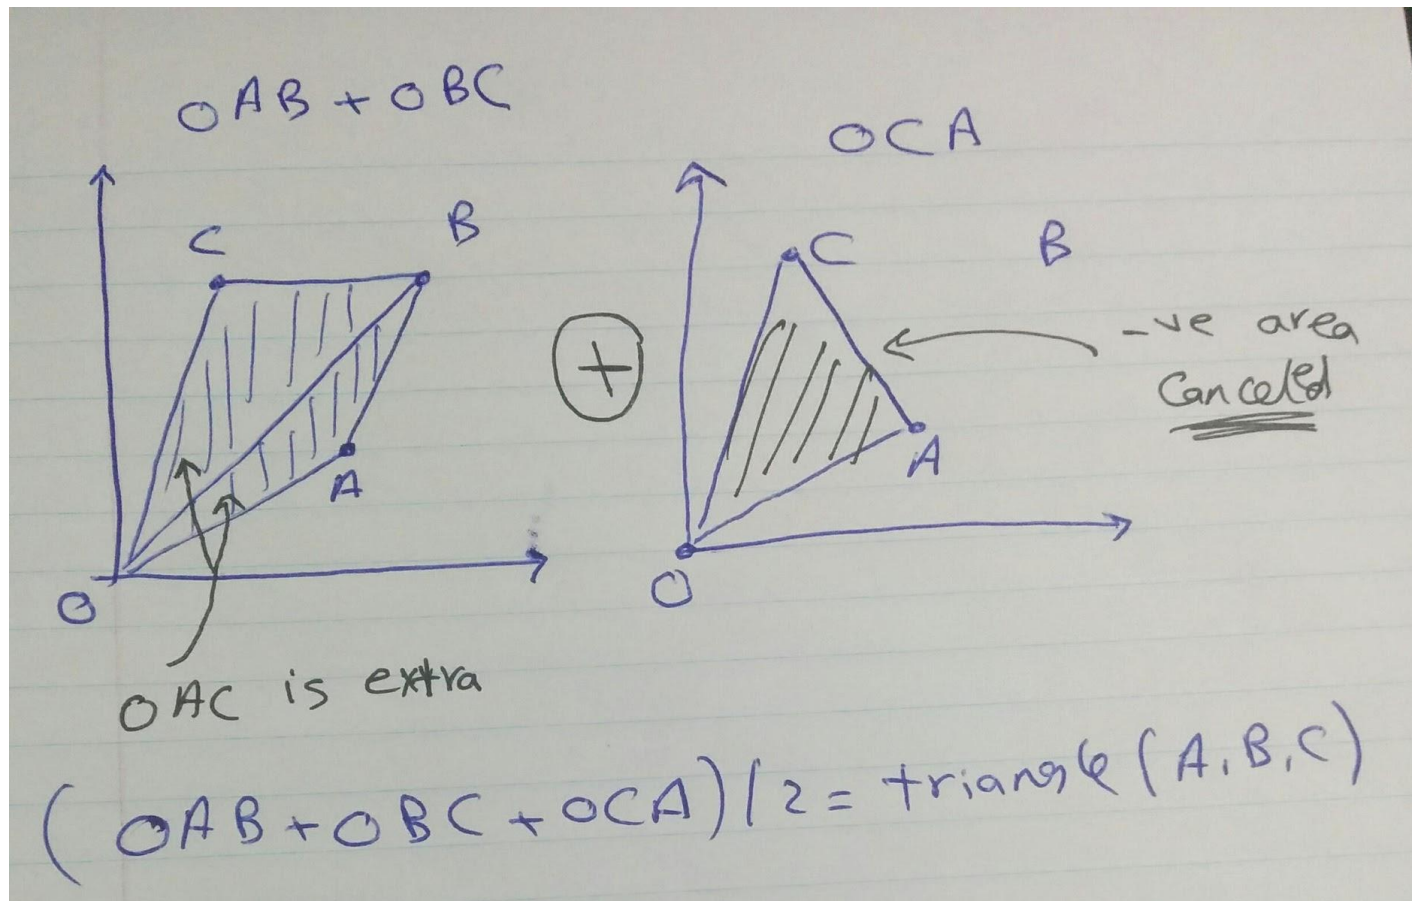 OAB + OBC
OCA
C
B
A
O
OAC is extra
+
C
B
A
O
-ve area
Canceled
(OAB + OBC + OCA)/2 = triangle (A, B, C)